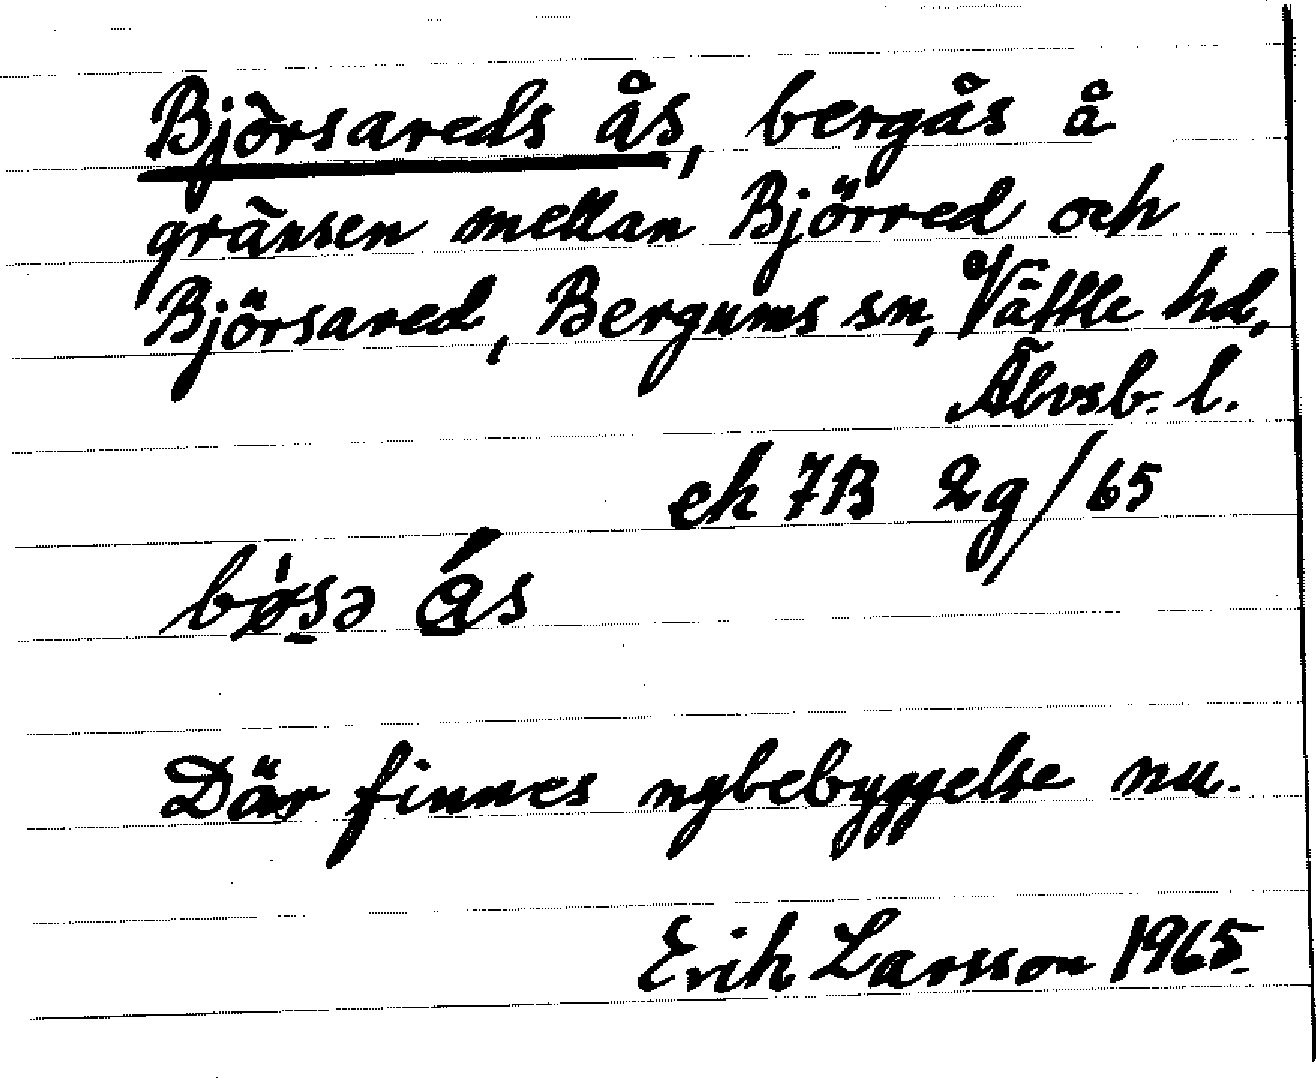 Björsareds ås, bergås å
gränsen mellan Björred och
Björsared, Bergums sn, Vättle hd,
Älvsb. l.
ek 7B 2g/65
Där finnes nybebyggelse nu.
Erik Larsson 1965.